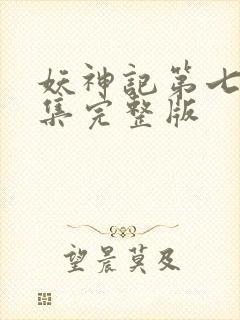 妖神記第七
集完整版
望晨莫及